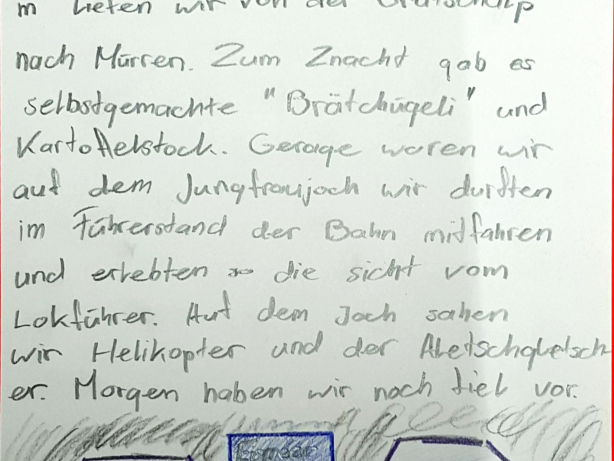 m liefen wir von der Grütschalp
nach Mürren. Zum Znacht gab es
selbstgemachte "Brätchügeli" und
Kartoffelstock. Gerage waren wir
auf dem Jungfraujoch wir durften
im Führerstand der Bahn mitfahren
und erlebten die sicht vom
Lokführer. Auf dem Joch sahen
wir Helikopter und der Aletschgletsch
er. Morgen haben wir noch fiel vor.